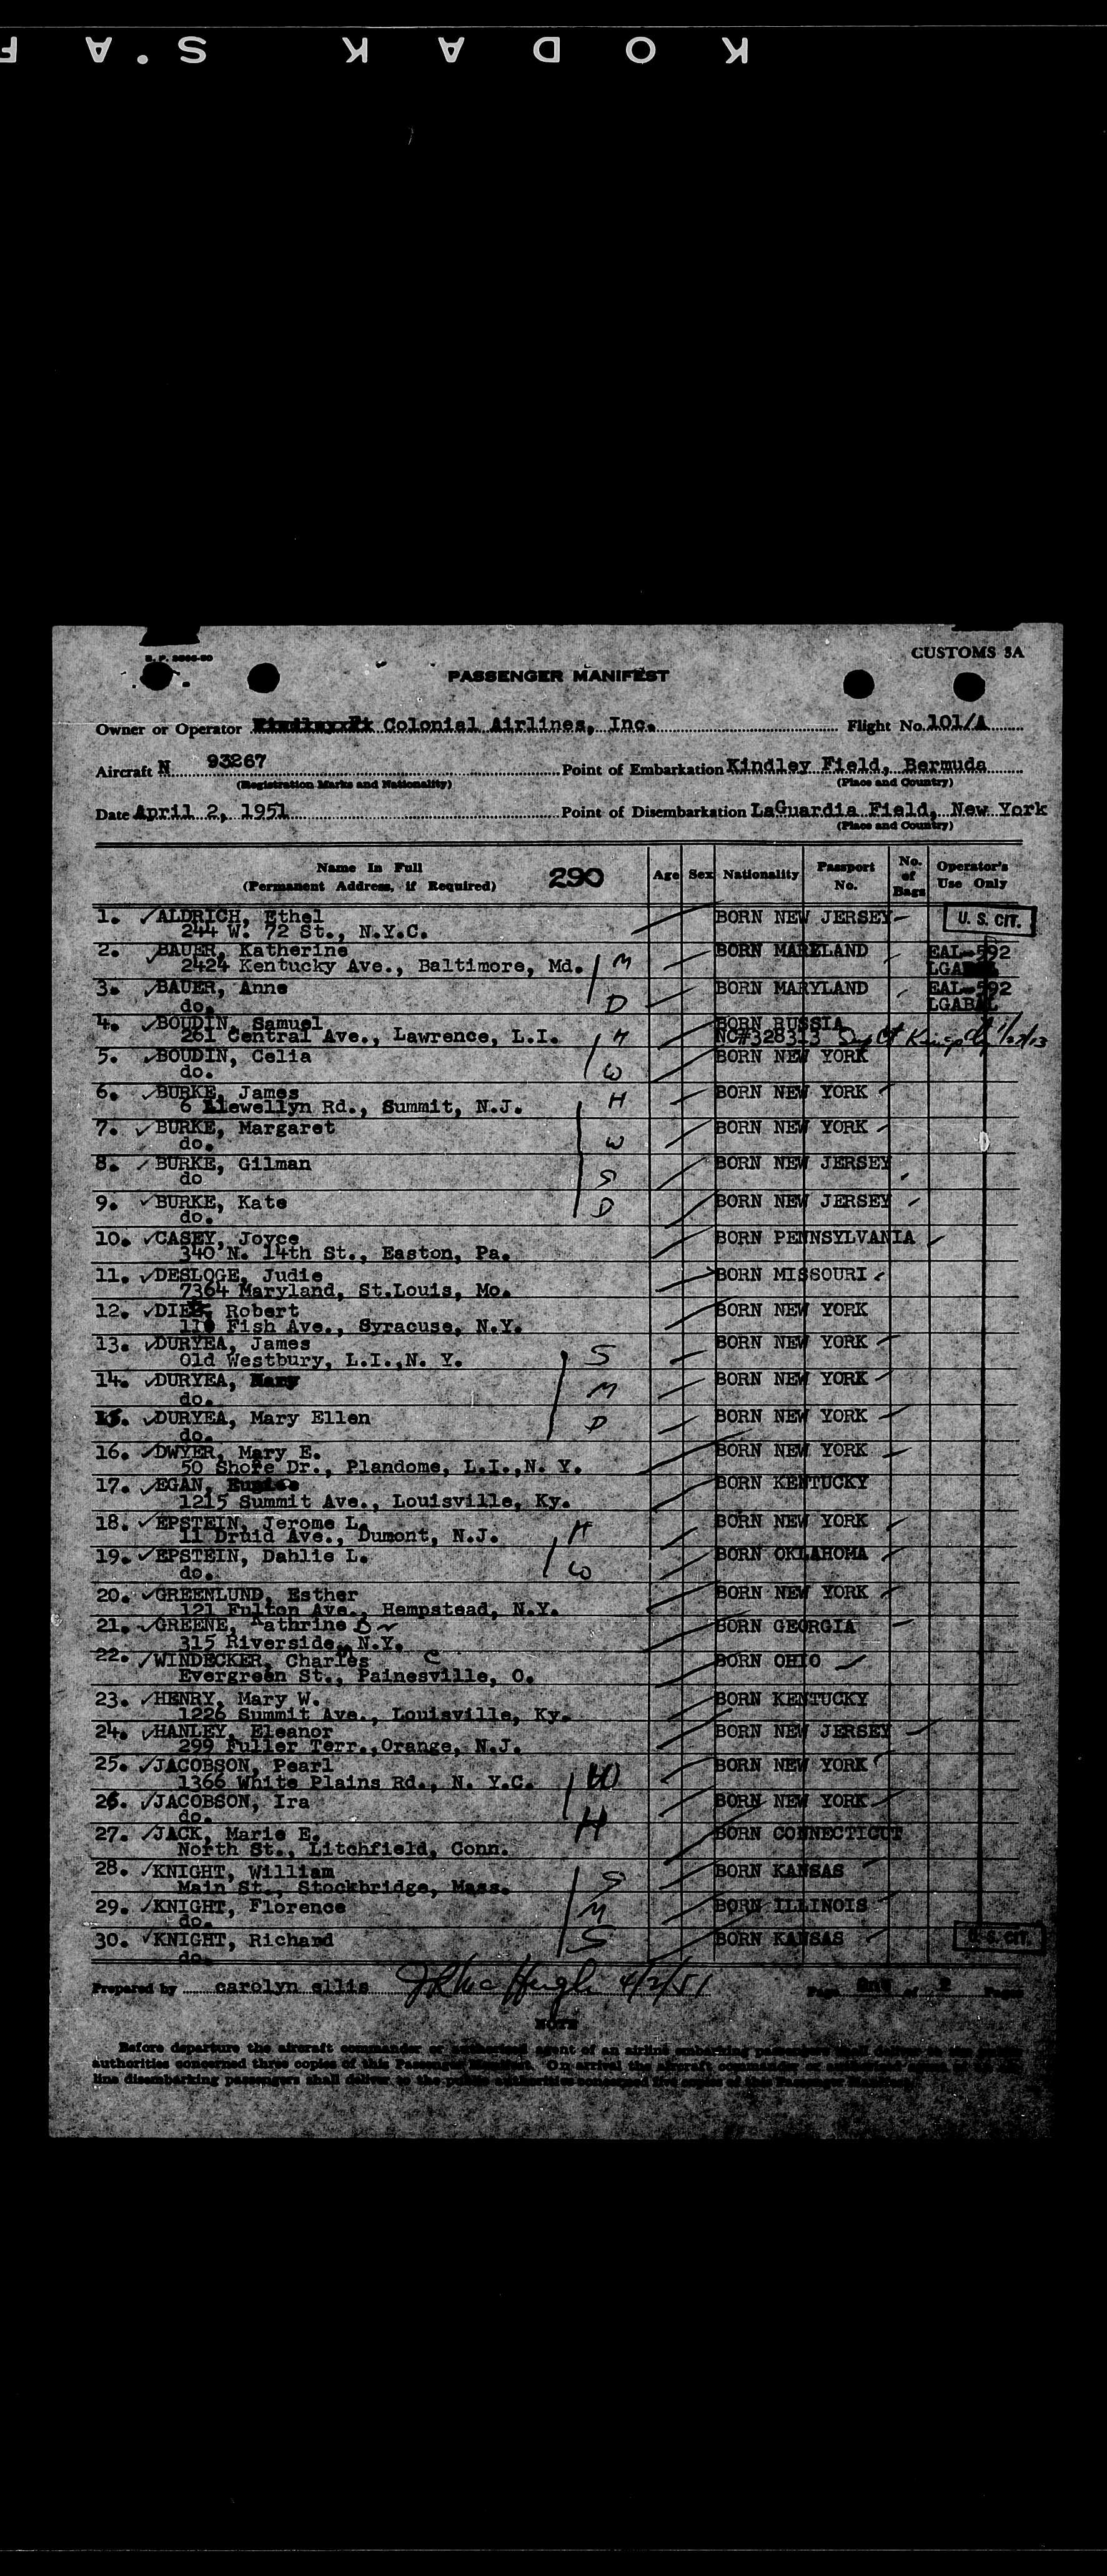 KODAK S.A F
CUSTOMS 3A
PASSENGER MANIFEST
Owner or Operator Colonial Airlines, Inc. Flight No. 101/A
Aircraft N 93267 Point of Embarkation Kindley Field, Bermuda
(Registration Marks and Nationality) (Place and Country)
Date April 2, 1951 Point of Disembarkation LaGuardia Field, New York
(Place and Country)
Name In Full (Permanent Address, if Required) 290 Age Sex Nationality Passport No. No. of Bags Operator's Use Only
1. ALDRICH, Ethel BORN NEW JERSEY U. S. CIT.
244 W. 72 St., N.Y.C.
2. BAUER, Katherine BORN MARYLAND EAL-592
2424 Kentucky Ave., Baltimore, Md. M
3. BAUER, Anne BORN MARYLAND EAL-592
do. D LGABAL
4. BOUDIN, Samuel BORN RUSSIA
261 Central Ave., Lawrence, L.I. H NC#328313
5. BOUDIN, Celia BORN NEW YORK
do. W
6. BURKE, James BORN NEW YORK
6 Llewellyn Rd., Summit, N.J. H
7. BURKE, Margaret BORN NEW YORK
do. W
8. BURKE, Gilman BORN NEW JERSEY
do S
9. BURKE, Kate BORN NEW JERSEY
do. D
10. CASEY, Joyce BORN PENNSYLVANIA
340 N. 14th St., Easton, Pa.
11. DESLOGE, Judie BORN MISSOURI
7364 Maryland, St.Louis, Mo.
12. Robert BORN NEW YORK
Fish Ave., Syracuse, N.Y.
13. DURYEA, James BORN NEW YORK
Old Westbury, L.I.,N. Y. S
14. DURYEA, Mary BORN NEW YORK
do. M
15. DURYEA, Mary Ellen BORN NEW YORK
do. D
16. DWYER, Mary E. BORN NEW YORK
50 Shore Dr., Plandome, L.I.,N. Y.
17. EGAN, BORN KENTUCKY
1215 Summit Ave., Louisville, Ky.
18. EPSTEIN, Jerome L. BORN NEW YORK
11 Druid Ave., Dumont, N.J. H
19. EPSTEIN, Dahlie L. BORN OKLAHOMA
do. W
20. GREENLUND, Esther BORN NEW YORK
121 Fulton Ave., Hempstead, N.Y.
21. GREENE, Kathrine BORN GEORGIA
315 Riverside, N.Y.
22. WINDECKER, Charles C BORN OHIO
Evergreen St., Painesville, O.
23. HENRY, Mary W. BORN KENTUCKY
1226 Summit Ave., Louisville, Ky.
24. HANLEY, Eleanor BORN NEW JERSEY
299 Fuller Terr.,Orange, N.J.
25. JACOBSON, Pearl BORN NEW YORK
1366 White Plains Rd., N. Y.C. W
26. JACOBSON, Ira BORN NEW YORK
do. H
27. JACK, Marie E. BORN CONNECTICUT
North St., Litchfield, Conn.
28. KNIGHT, William BORN KANSAS
Main St., Stockbridge, Mass. S
29. KNIGHT, Florence BORN ILLINOIS
do. M
30. KNIGHT, Richard BORN KANSAS U. S. CIT.
do. S
Prepared by carolyn ellis 4/2/51 Page of 2 Pages
NOTE
Before departure the aircraft commander or authorized agent of an airline embarking passengers shall deliver to the
authorities concerned three copies of this Passenger Manifest. On arrival the aircraft commander or
line disembarking passengers shall deliver to the public authorities concerned copies of this Passenger Manifest.